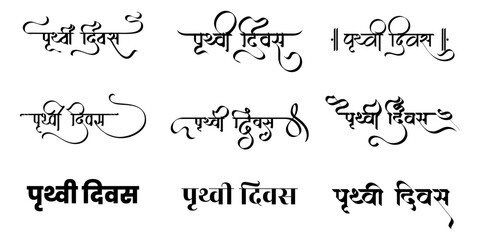 पृथ्वी दिवस
पृथ्वी दिवस
॥पृथ्वी दिवस॥
पृथ्वी दिवस
पृथ्वी दिवस
पृथ्वी दिवस
पृथ्वी दिवस
पृथ्वी दिवस
पृथ्वी दिवस